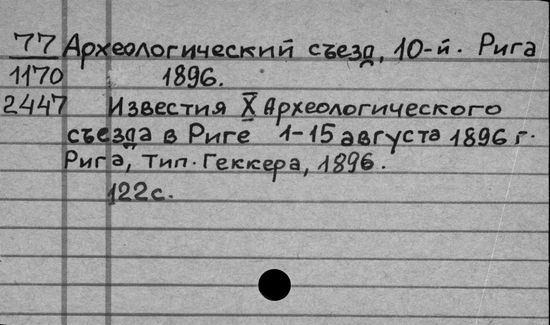 77 Археологический съезд, 10-й. Рига
1170 1896.
2447 Известия X Археологического
съезда в Риге 1-15 августа 1896 г.
Рига, Тип. Геккера, 1896.
122 с.